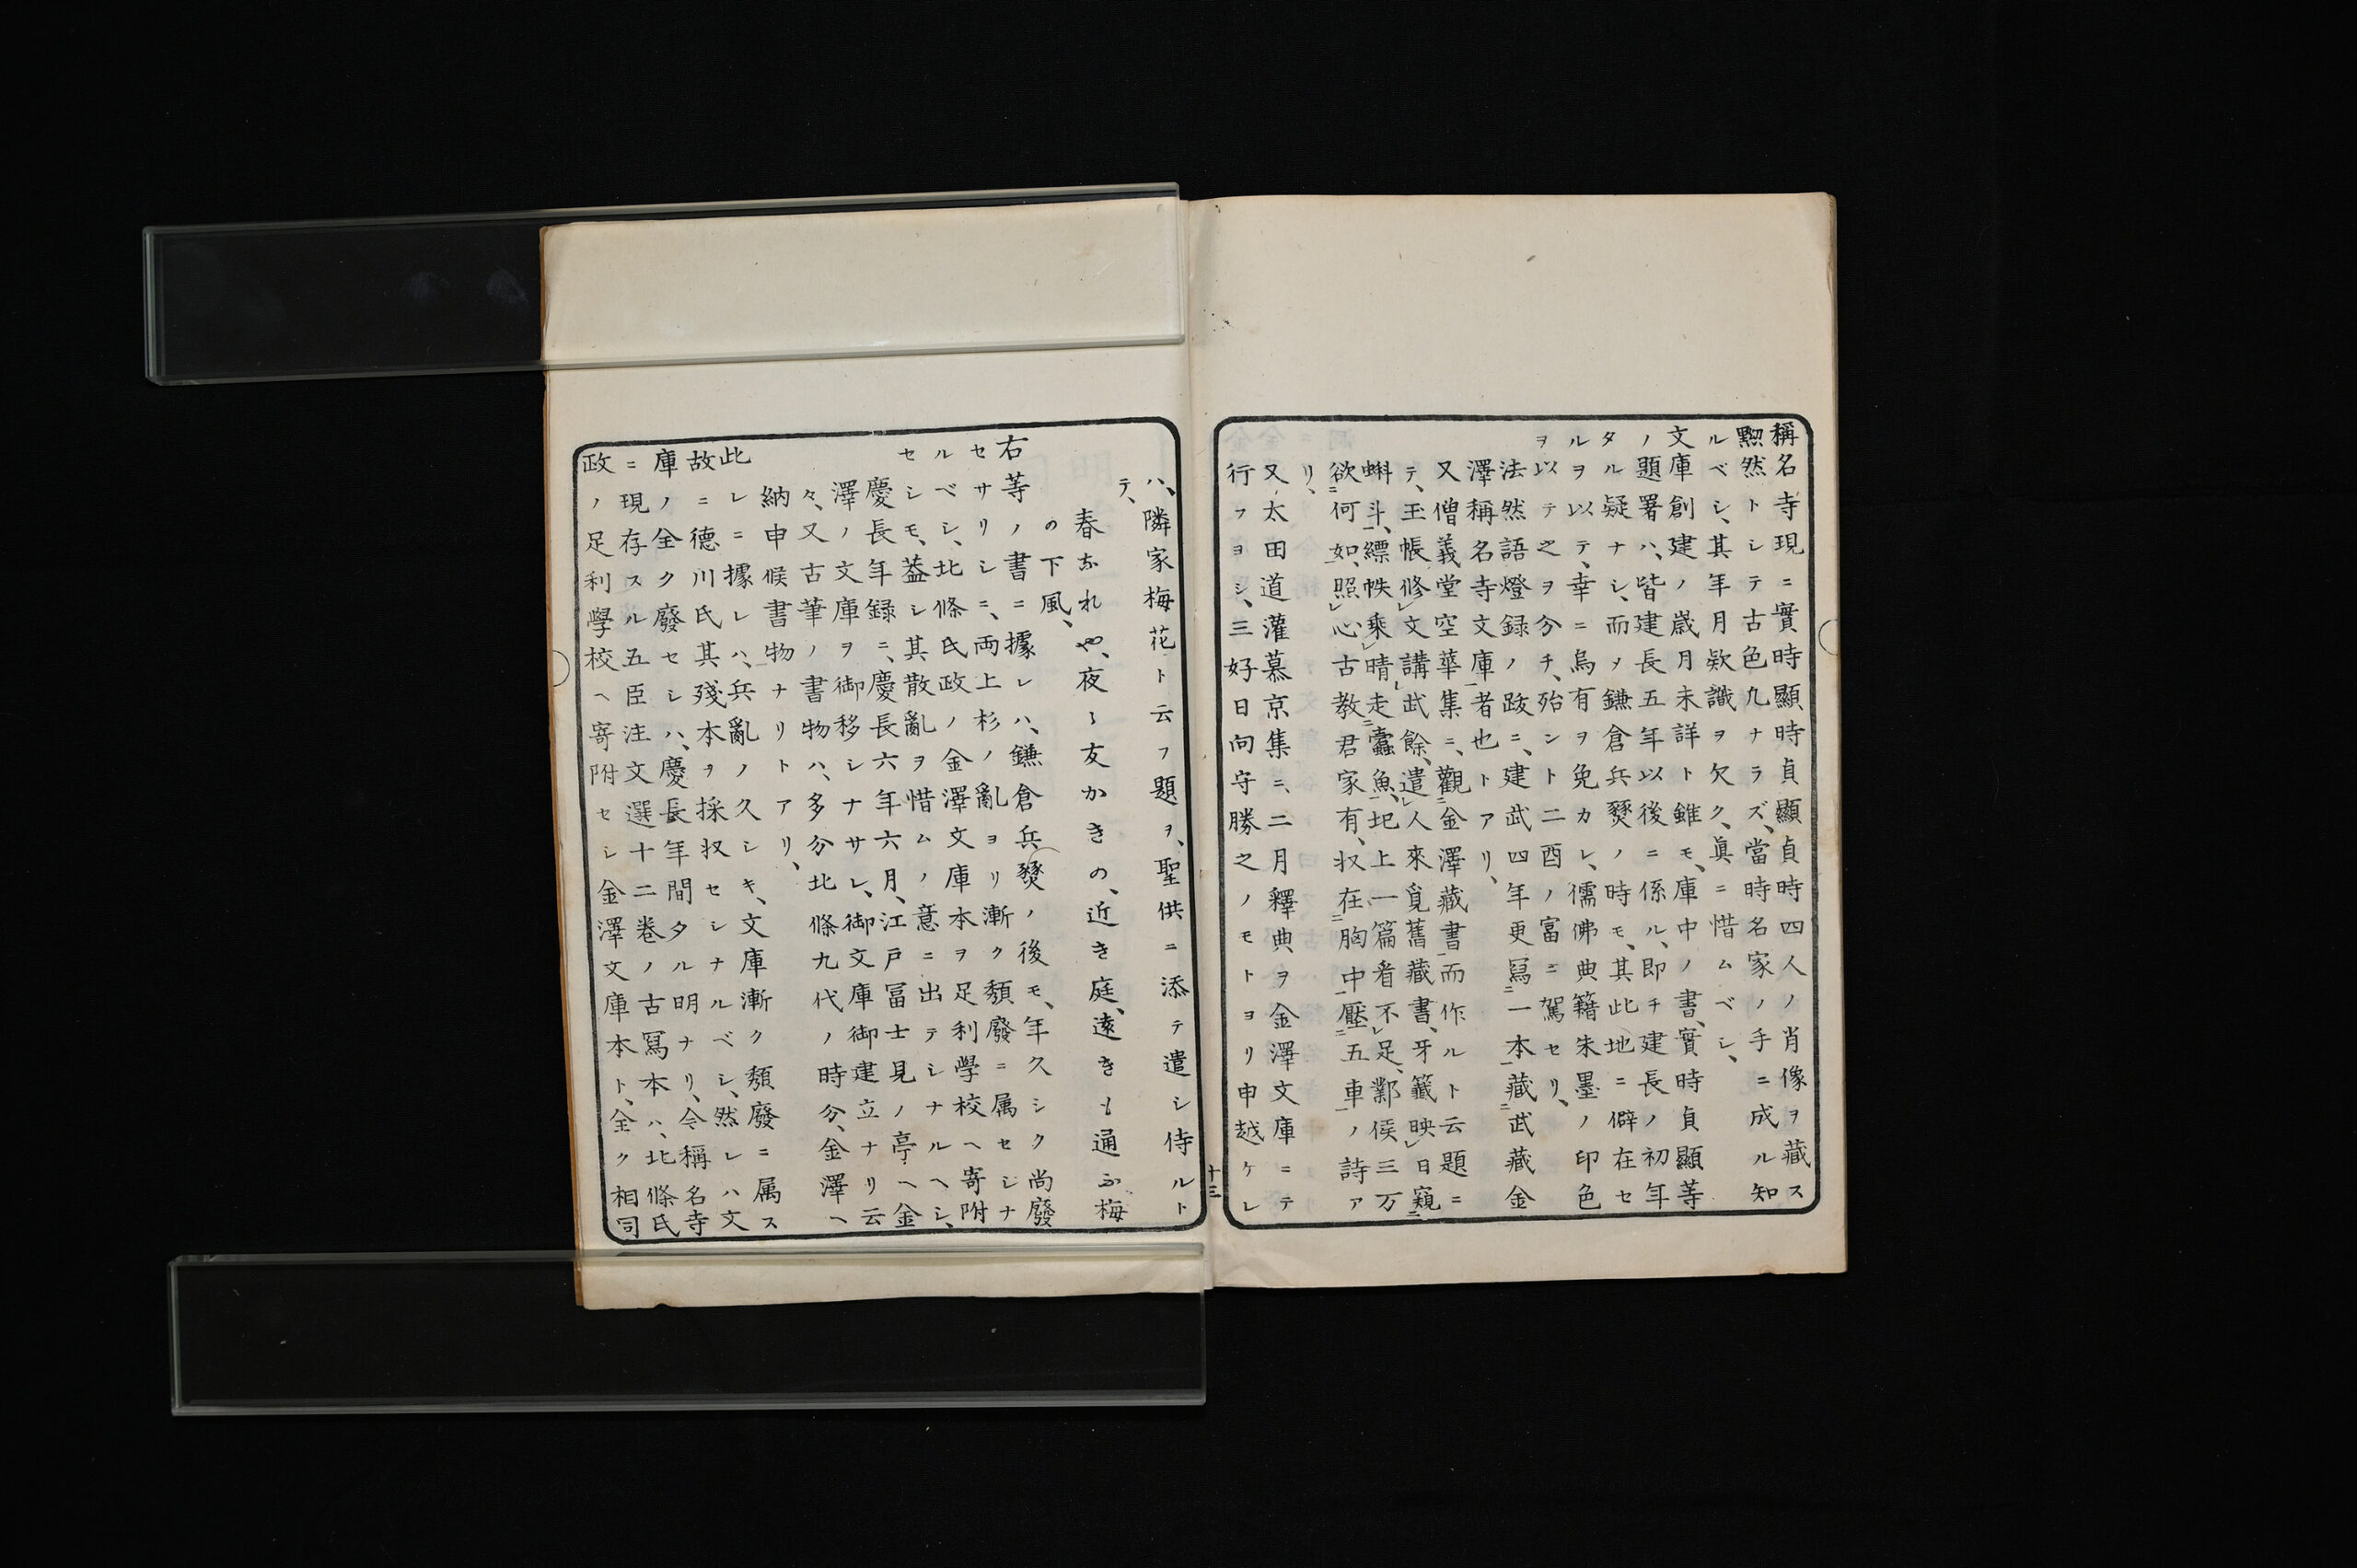 稱名寺現ニ實時顯時貞顯貞時四人ノ肖像ヲ藏ス
黙然トシテ古色凡ナラズ、當時名家ノ手ニ成ル知
ルベシ、其年月欵識ヲ欠ク、眞ニ惜ムベシ、
文庫創建ノ歳月未詳ト雖モ、庫中ノ書、實時貞顯等
ノ題署ハ、皆建長五年以後ニ係ル、即チ建長ノ初年
タル疑ナシ、而ソ鎌倉兵燹ノ時モ、其此地ニ僻在セ
ルヲ以テ、幸ニ烏有ヲ免カレ、儒佛典籍朱墨ノ印色
ヲ以テ之ヲ分チ、殆シト二酉ノ富ニ駕セリ、
法然語燈録ノ跋ニ、建武四年更冩一本藏武藏金
澤稱名寺文庫者也トアリ、
又僧義堂空華集ニ、觀金澤藏書而作ルト云題ニ
テ、玉帳修文講武餘、遣人來覓舊藏書、牙籤映日窺
蝌斗、縹帙乗晴走蠹魚、圯上一篇者不足、鄴侯三万
欲何如、照心古教君家有、収在胸中壓五車ノ詩ア
リ、
又太田道灌慕京集ニ、二月釋典ヲ金澤文庫ニテ
行フヨシ、三好日向守勝之ノモトヨリ申越ケレ
十三
ハ、隣家梅花ト云フ題ヲ、聖供ニ添テ遣シ侍ルト
テ、
春なれや、夜ゝ友かきの、近き庭、遠きも通ふ梅
の下風、
右等ノ書ニ據レハ、鎌倉兵燹ノ後モ、年久シク尚廢
セサリシニ、両上杉ノ亂ヨリ漸ク頽廢ニ属セシナ
ルベシ、北條氏政ノ金澤文庫本ヲ足利學校ヘ寄附
セシモ、葢シ其散亂ヲ惜ムノ意ニ出テシナルヘシ、
慶長年録ニ、慶長六年六月、江戸冨士見ノ亭ヘ金
澤ノ文庫ヲ御移シナサレ、御文庫御建立ナリ云
々、又古筆ノ書物ハ、多分北條九代ノ時分、金澤ヘ
納申候書物ナリトアリ、
此レニ據レハ、兵亂ノ久シキ、文庫漸ク頽廢ニ属ス
故ニ德川氏其殘本ヲ採収セシナルベシ、然レハ文
庫ノ全ク廢セシハ、慶長年間タル明ナリ、今稱名寺
ニ現存スル五臣注文選十二巻ノ古冩本ハ、北條氏
政ノ足利學校ヘ寄附セシ金澤文庫本ト、全ク相同